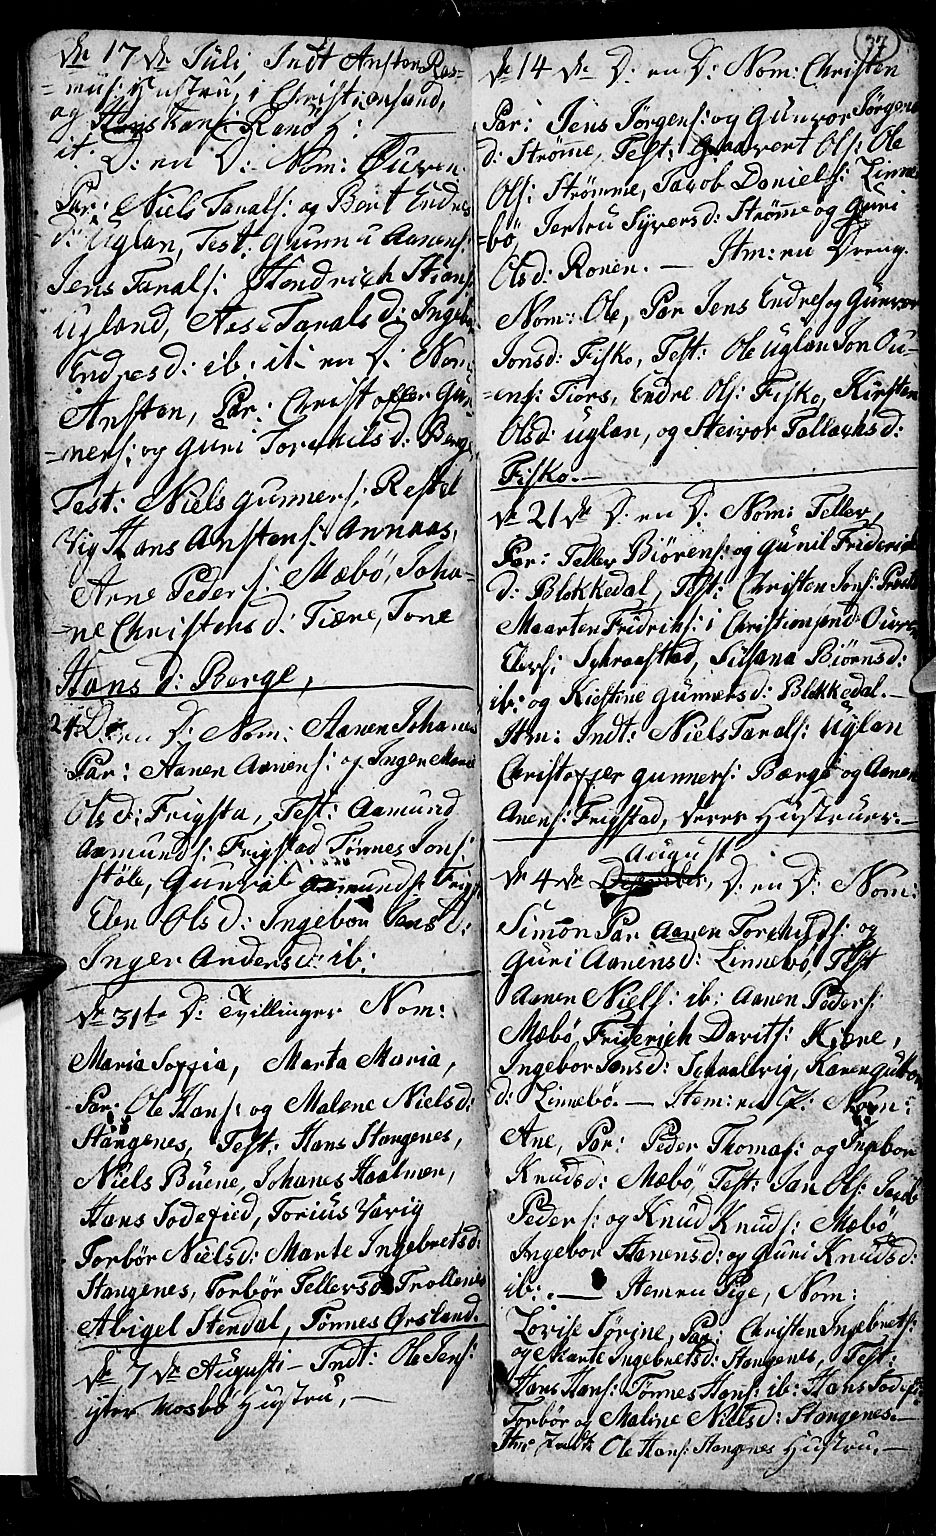 de 17de Juli Indt Ansten Ras-
=mus: Hustru, i Christiansand,
og Ranö H:
it: D: en D: Nom: Ouven
Par: Niels Taralls: og Bert Endres
d: Uglan, Test: Gunnu Aanens:
Jens Taralls: Hendrich Stians:
Ugland, Aase Taralsd: Ingebor
Endresd: ib: it: en D: Nom:
Ansten, Par: Christoffer Gun-
=ners: og Guri Torchilsd: Berge
Test: Niels Gunners: Restel
Vig Hans Anstens: Annaas,
Arne Peders: Mæbö, Joha-
=ne Christensd: Tiære, Tone
Hansd: Berge,
24de en D: Nom: Aanen Johanes
Par: Aanen Aanens: og Inger Maria
Olsd: Frigsta, Test: Aamund
Aamunds: Frigstad Tönnes Jons:
Stöle, Gunval Aamunds: Frigst
Elen Olsd: Ingebor Jansd:
Inger Andersd: ib:
de 31te D: Tvillinger Nom:
Maria Soffia, Marta Maria,
Par: Ole Hans: og Malene Nielsd:
Stangenes, Test: Hans Stangenes,
Niels Buene, Johanes Haalmen,
Hans Sodefied, Torius Varig
Torbör Nielsd: Marte Ingebretsd:
Stangenes, Torbör Tellersd: Trollenes
Abigel Stendal, Tönnes Örsland.
de 7de Augusti – Indt: Ole Jens:
ytre Mosbö Hustru, —
37
de 14de D: en D: Nom: Christen
Par: Jens Jörgens: og Gunvor Jörgens
d: Strömme, Test: Ols: Ole
Ols: Strömme, Jacob Daniels: Linne
=bö, Jertru Syversd: Strömme og Guri
Olsd: Ronen. — Item: en Dreng.
Nom: Ole, Par Jens Endres og Gunvor
Jonsd: Fisko, Test: Ole Uglan Jon Ou-
=ens: Tiors, Endre Ols: Fisko, Kirsten
Olsd: Uglan, og Steivor Tollachsd:
Fisko. —
de 21de D: en D: Nom: Teller,
Par: Teller Biörens: og Gunil Friderich
d: Blokkedal, Test: Christen Jons:
Maarten Fridrichs: i Christiansand Ouven
Elers: Schraastad, Susana Biörnsd:
ib: og Kiestine Gunnersd: Blokkedal. —
Item: Indt: Niels Tarals: Uglan
Christoffer Gunners: Bærge og Aanen
Anens: Frigstad, deres Hustruer. —
August
de 4de D: en D: Nom:
Simon Par Aanen Torchilds: og
Guri Aanensd: Linnebö, Test
Aanen Niels: ib: Aanen Peders:
Mæbö, Friderich Davits: Kiære,
Ingebor Jonsd: Schaalevig, Karen Gulbor
d: Linnebö. — Item: en P: Nom:
Ane, Par: Peder Thomas: og Ingebor
Knudsd: Mæbö, Test: Jan Ols: Jacob
Peders: og Knud Knuds: Mæbö
Ingebor Aanensd: og Guri Knudsd:
ib: — Item en Pige, Nom:
Lovise Sörine, Par: Christen Ingebrets:
og Marte Ingebretsd: Stangenes, Test:
Hans Hans: Tönnes Hans: ib: Hans Sodefi:
Torbör og Maline Nielsd: Stangenes. —
Item: Indt: Ole Hans: Stangenes Hustru. —